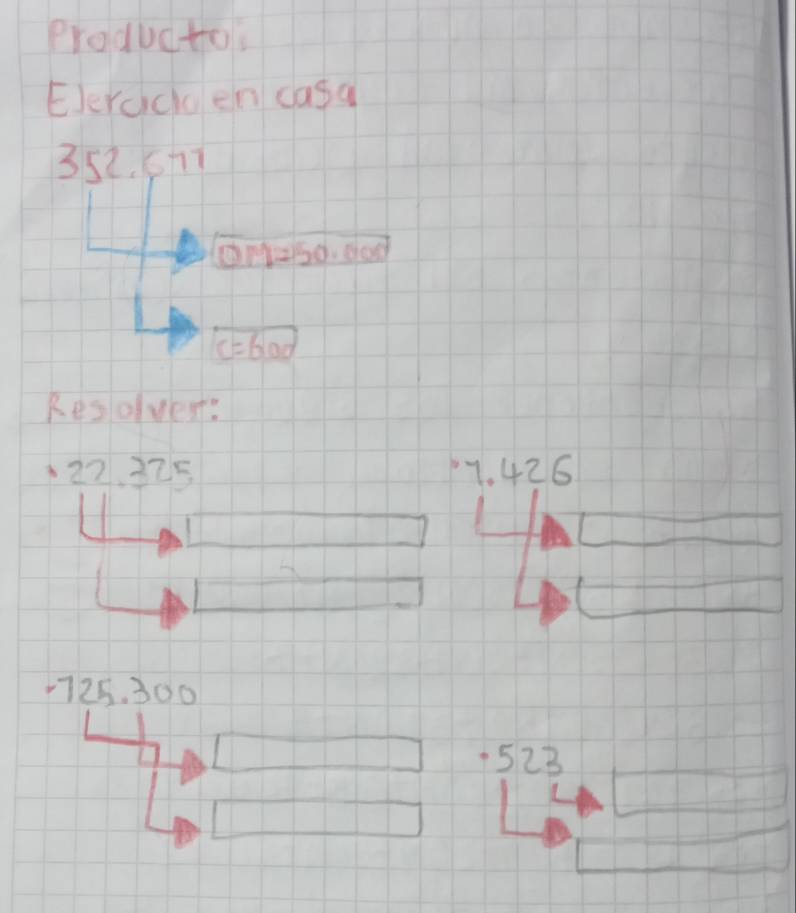 Producto:
Ejercicio en casa
352.677
DM=50.000
C=600
Resolver:
•22.325
•7.426
•725.300
•523